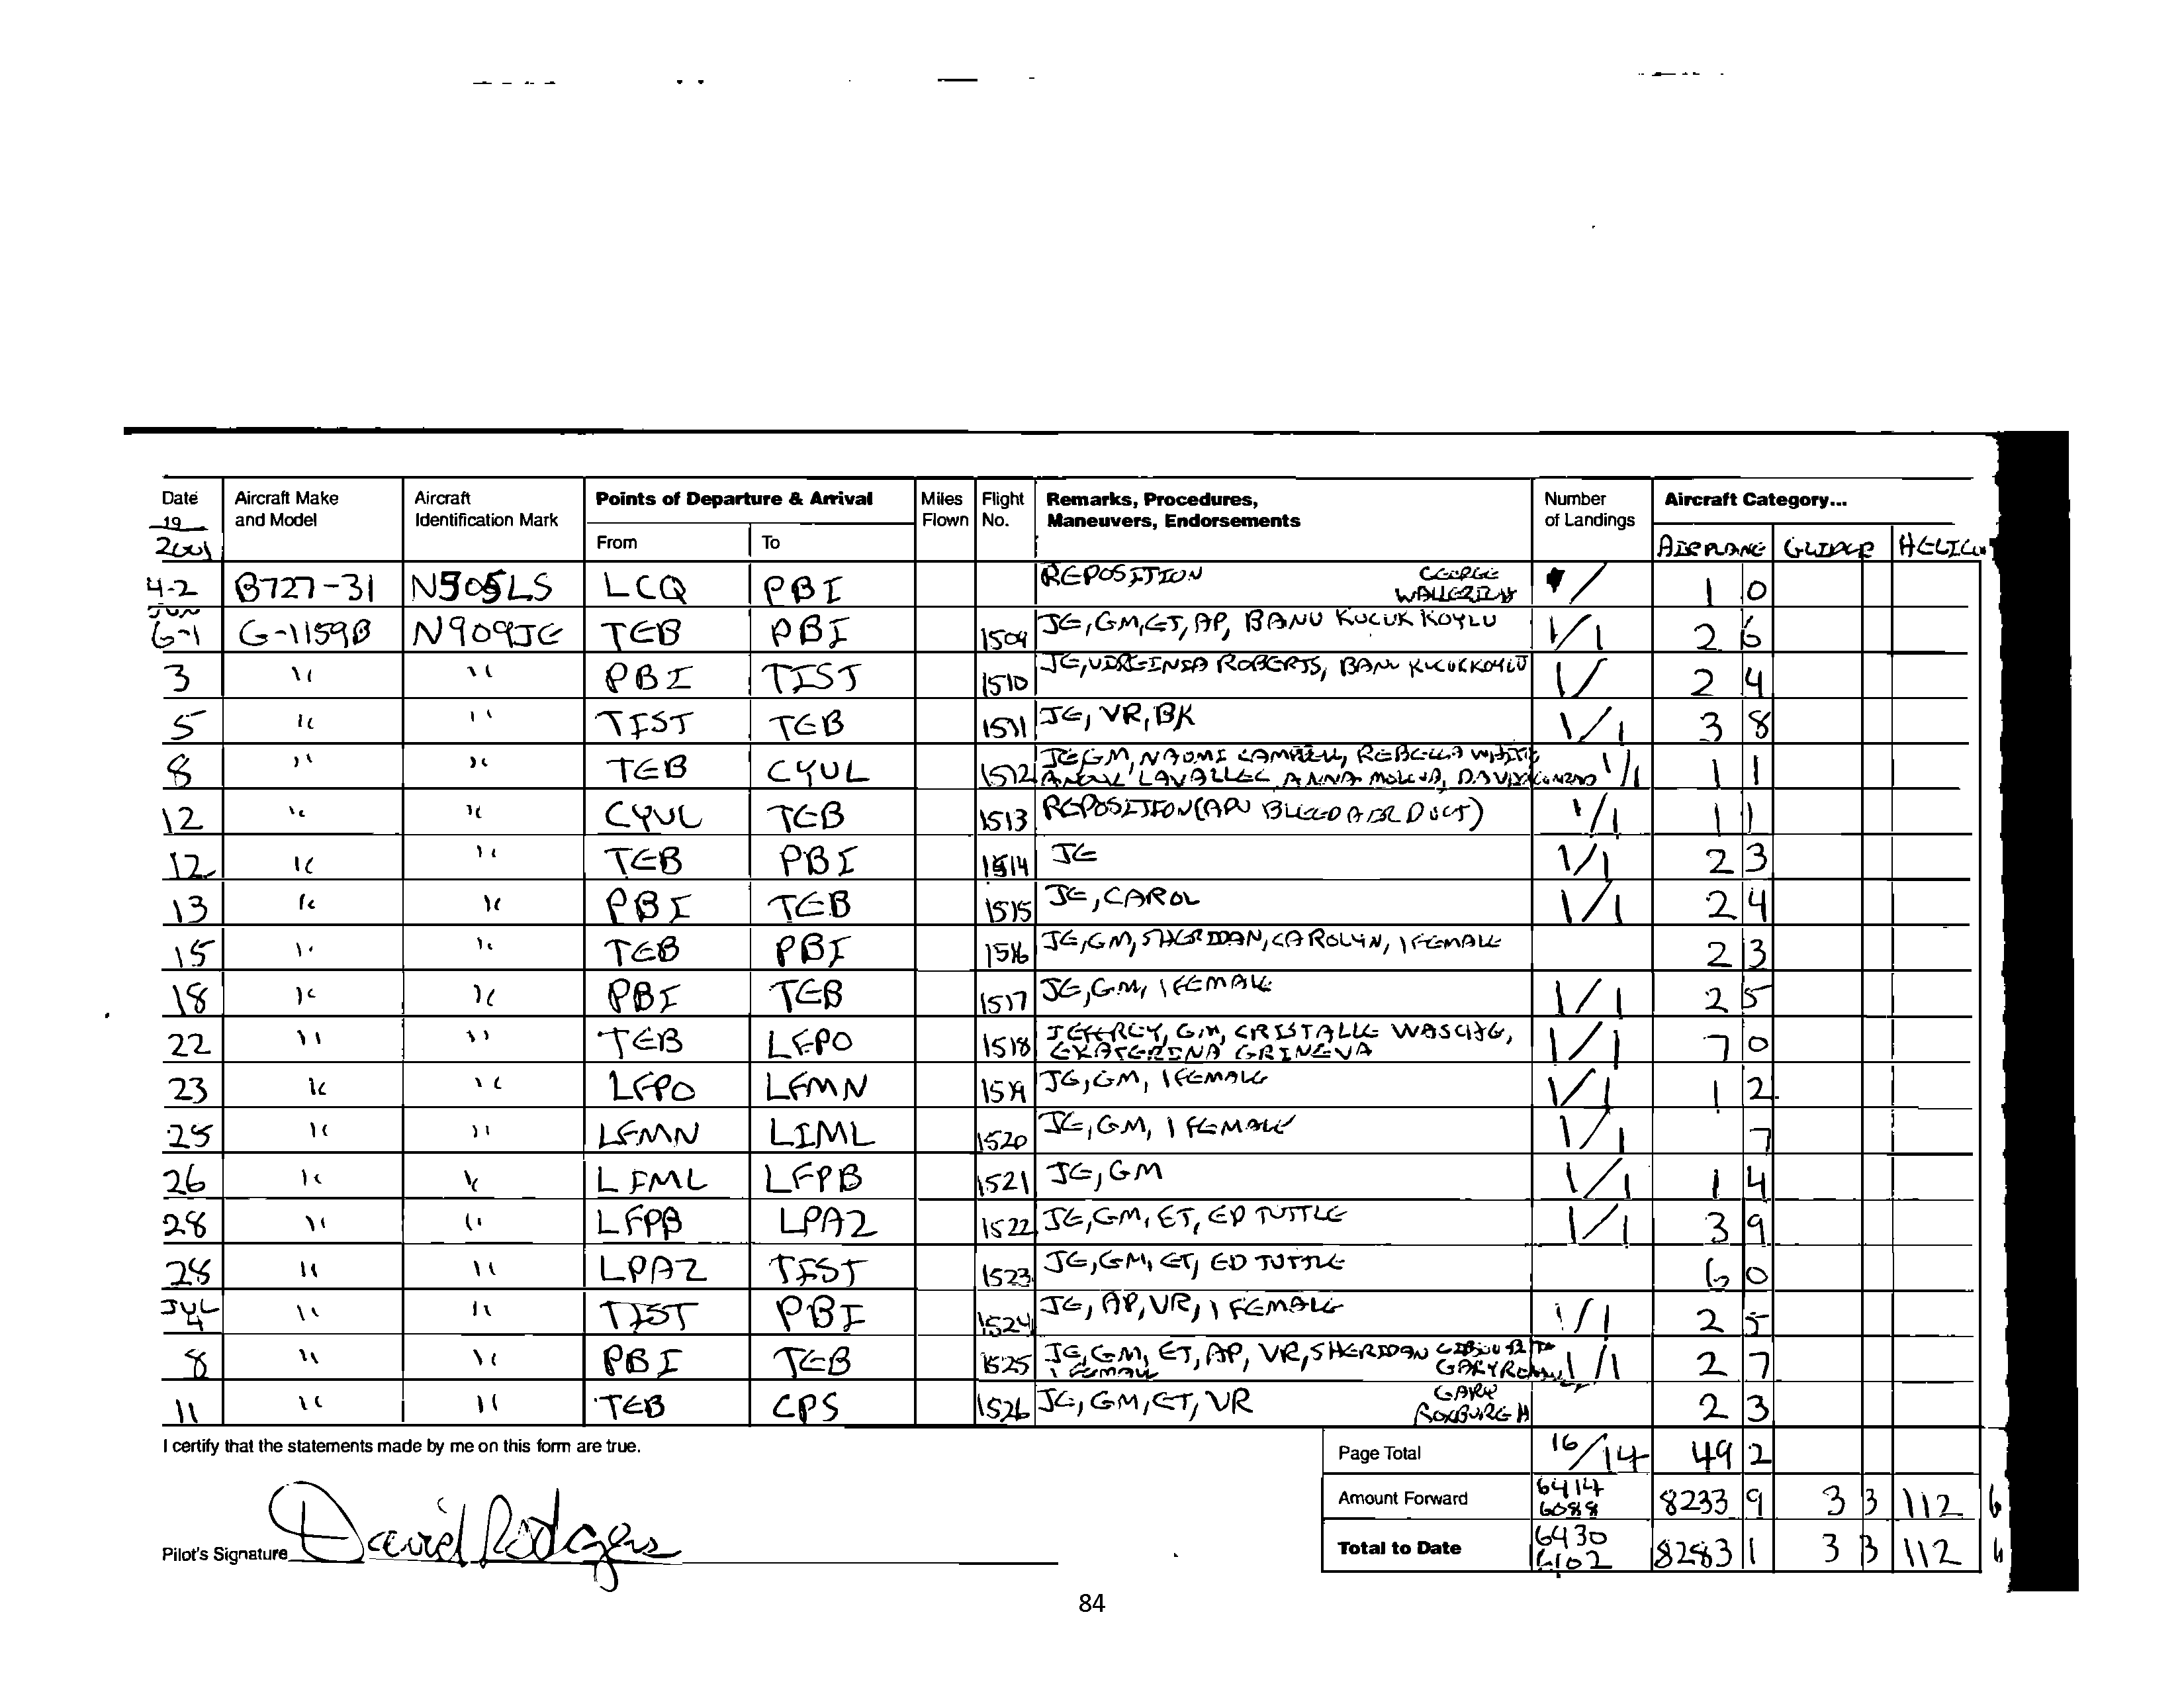 Date Aircraft Make Aircraft Points of Departure & Arrival Miles Flight Remarks, Procedures, Number Aircraft Category...
19 and Model Identification Mark Flown No. Maneuvers, Endorsements of Landings
2001 From To AIRPLANE GLIDER HELICO
4-2 B727-31 N505LS LCQ PBI REPOSITION GEORGE / 1 0
JUN
6-1 G-1159B N909JE TEB PBI 1509 JE, GM, ET, AP, BANU KUCUK KOYLU 1/1 2 6
3 " " PBI TIST 1510 JE, VIRGINIA ROBERTS, BANU KUCUKKOYLU 1/ 2 4
5 " " TIST TEB 1511 JE, VR, BK 1/1 3 8
8 " " TEB CYUL 1512 JE GM, NAOMI CAMPBELL, REBECCA WHITE
LAVALLEE ANNA 1/1 1 1
12 " " CYUL TEB 1513 REPOSITION (APU BLEED AIR DUCT) 1/1 1 1
12 " " TEB PBI 1514 JE 1/1 2 3
13 " " PBI TEB 1515 JE, CAROL 1/1 2 4
15 " " TEB PBI 1516 JE, GM, SHERIDAN, CAROLYN, 1 FEMALE 2 3
18 " " PBI TEB 1517 JE, GM, 1 FEMALE 1/1 2 5
22 " " TEB LFPO 1518 JEFFREY, GM, CRISTALLE WASCHE,
EKATERINA GRINEVA 1/1 7 0
23 " " LFPO LFMN 1519 JE, GM, 1 FEMALE 1/1 1 2
25 " " LFMN LIML 1520 JE, GM, 1 FEMALE 1/1 7
26 " " LIML LFPB 1521 JE, GM 1/1 1 4
28 " " LFPB LPAZ 1522 JE, GM, ET, ED TUTTLE 1/1 3 9
28 " " LPAZ TIST 1523 JE, GM, ET, ED TUTTLE 6 0
JUL
4 " " TIST PBI 1524 JE, AP, VR, 1 FEMALE 1/1 2 5
8 " " PBI TEB 1525 JE, GM, ET, AP, VR, SHERIDAN
1 FEMALE GARY 1/1 2 7
11 " " TEB CPS 1526 JE, GM, ET, VR GARY ROXBURGH 2 3
I certify that the statements made by me on this form are true.
Page Total 16/14 49 2
Amount Forward 6414 6088 8233 9 3 3 112 6
Pilot's Signature David Rodgers
Total to Date 6430 6102 8283 1 3 3 112 6
84